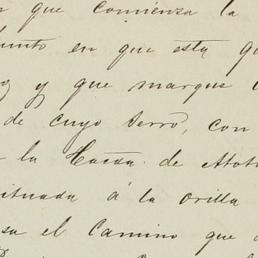 que comienza la
punto en que esta
y que marque
de cuyo serro, con
la Hacda. de Atoto
situada á la orilla
sa el Camino que